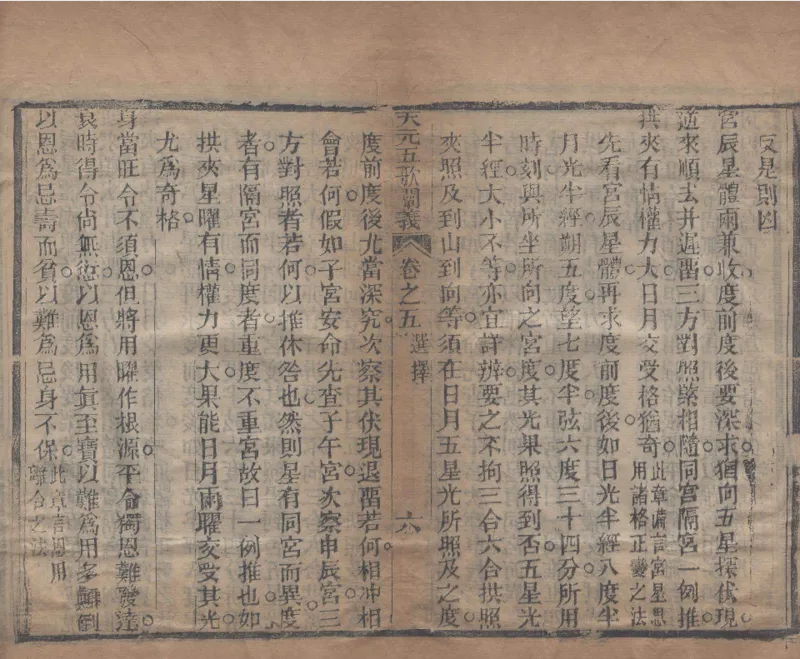 反是則凶
宮辰星體兩兼收度前度後要深求猶向五星探伏現
逆來順去并遲畱三方對照緊相隨同宮隔宮一例推
拱夾有情權力大日月交受格猶奇
此章備言宮星恩
用諸格正變之法
先看宮辰星體再求度前度後如日光半經八度半
月光半經朔五度望七度半弦六度三十四分所用
時刻與所坐所向之宮度其光果照得到否五星光
半經大小不等亦宜詳辨要之不拘三合六合拱照
夾照及到山到向等須在日月五星光所照及之度
天元五歌闡義 卷之五 選擇 六
度前度後尤當深究次察其伏現退畱若何相冲相
會若何假如子宮安命先查子午宮次察申辰宮三
方對照者若何以推休咎也然則星有同宮而異度
者有隔宮而同度者重度不重宮故曰一例推也如
拱夾星曜有情權力更大果能日月兩曜交受其光
尤爲奇格
身當旺令不須恩但將用曜作根源平命獨恩難發達
衰時得令尚無愆以恩爲用眞至寶以難爲用多顛倒
以恩爲忌壽而貧以難爲忌身不保
此章言恩用
離合之法